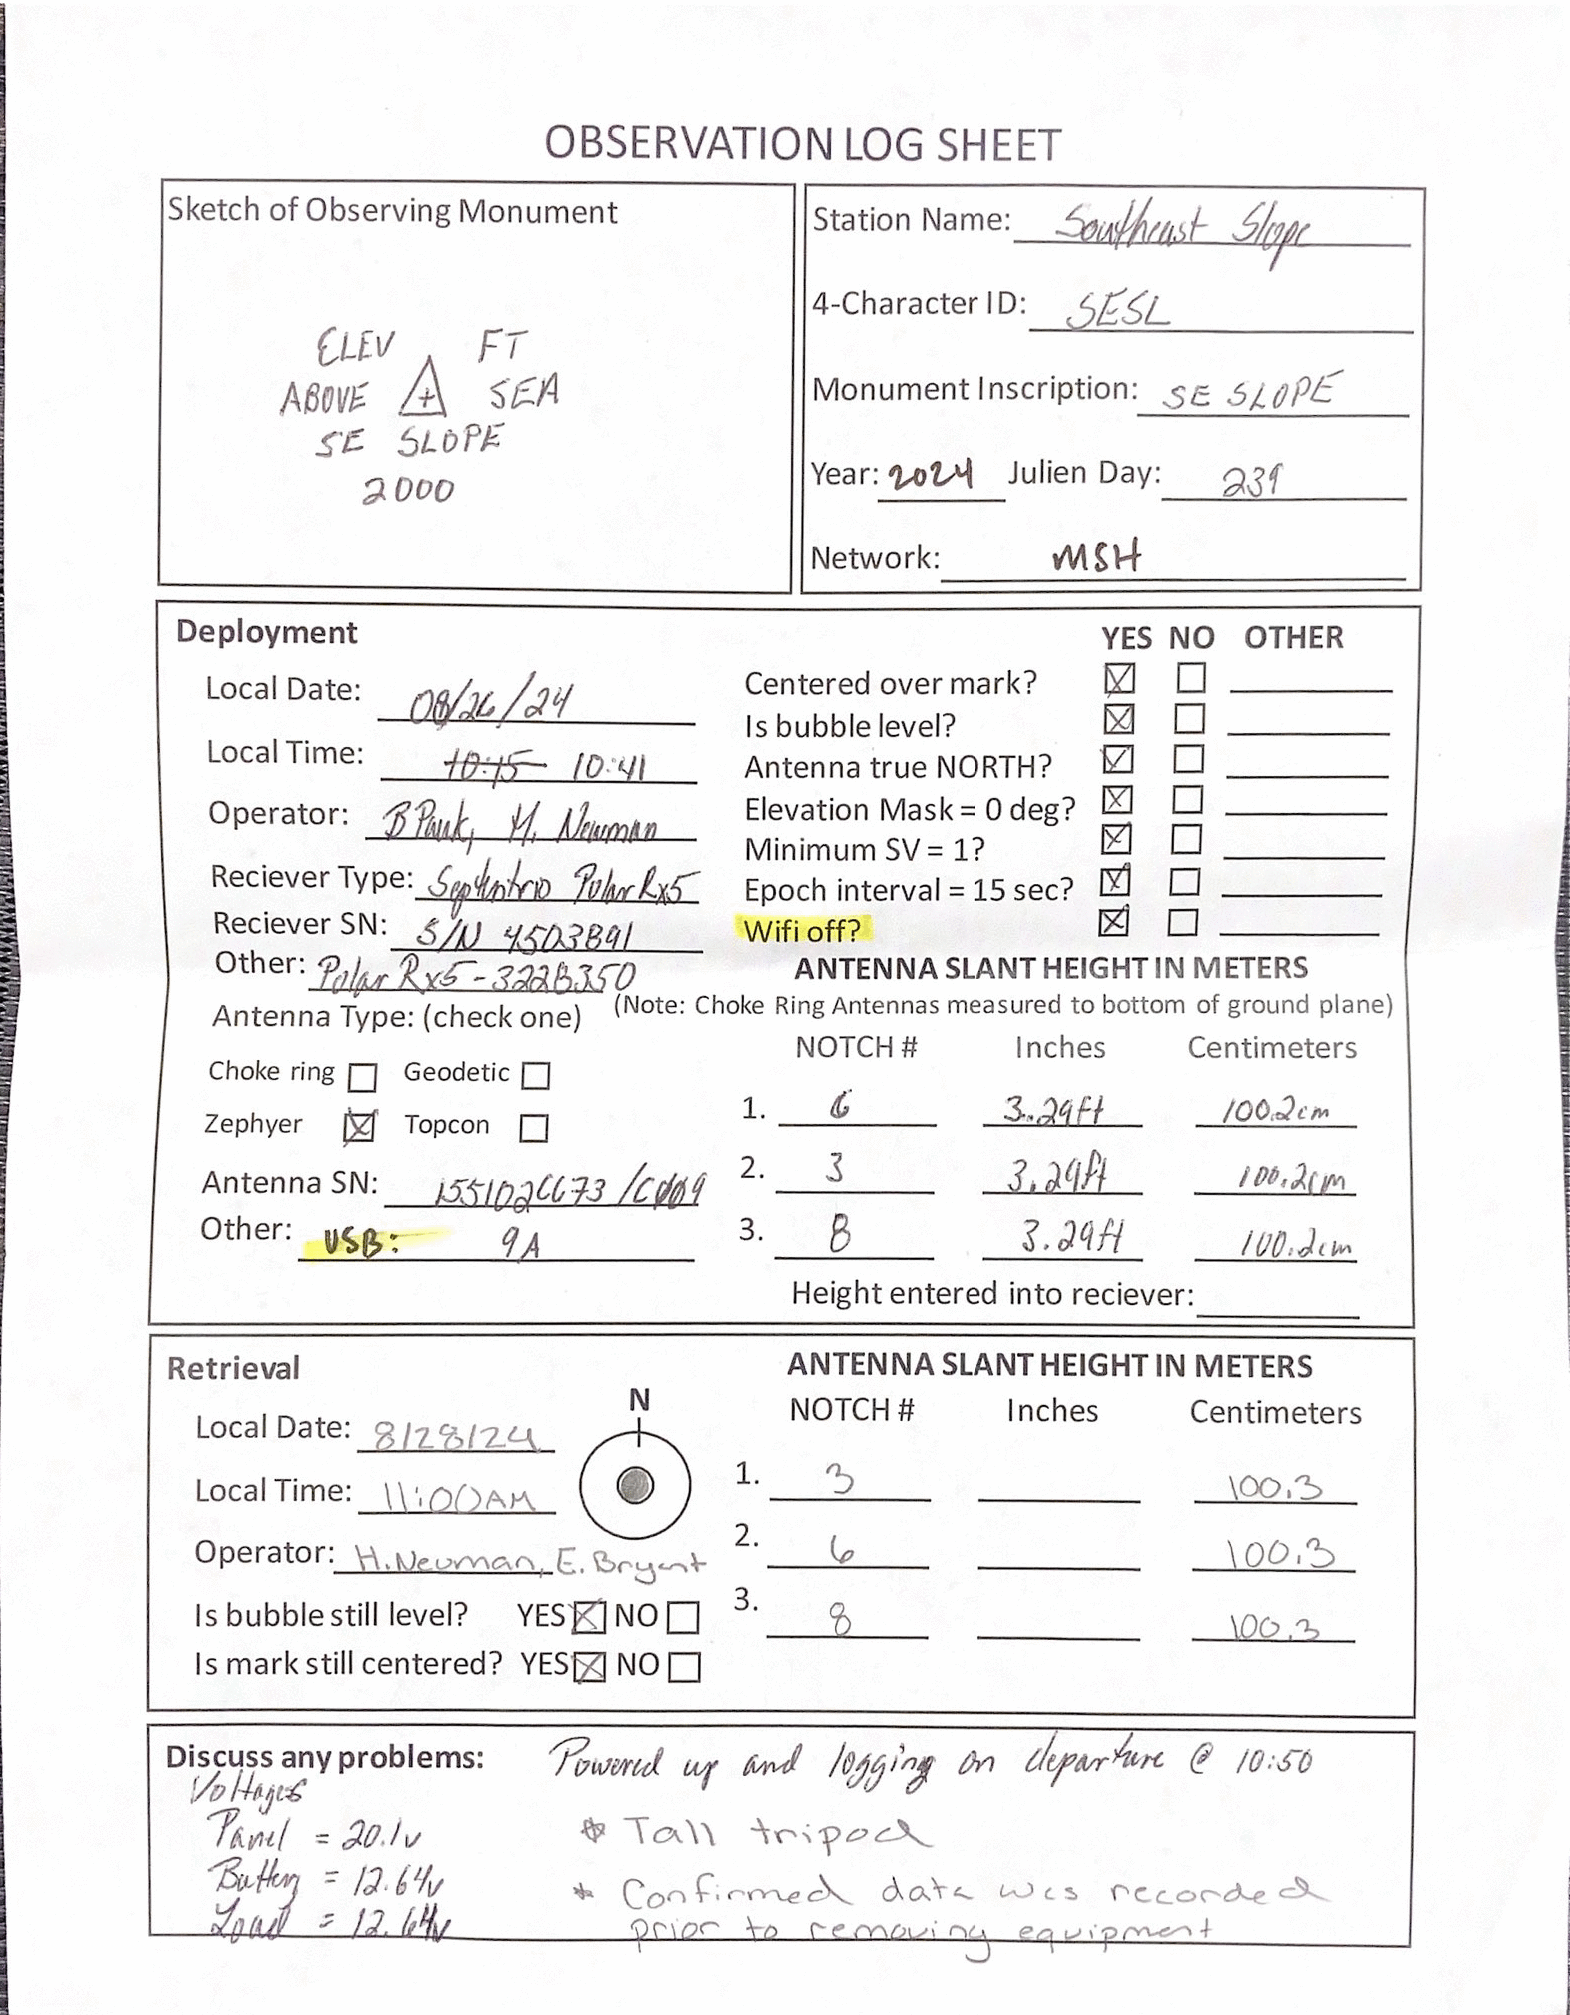 OBSERVATION LOG SHEET
Sketch of Observing Monument
ELEV FT
ABOVE + SEA
SE SLOPE
2000
Station Name: Southeast Slope
4-Character ID: SESL
Monument Inscription: SE SLOPE
Year: 2024 Julien Day: 239
Network: MSH
Deployment
Local Date: 08/26/24
Local Time: 10:15 10:41
Operator: B Pauk, M. Newman
Reciever Type: Septentrio PolarRx5
Reciever SN: S/N 4503891
Other: PolarRx5-3228350
Antenna Type: (check one)
Choke ring Geodetic
Zephyer Topcon
Antenna SN:
Other: USB: 9A
YES NO OTHER
Centered over mark?
Is bubble level?
Antenna true NORTH?
Elevation Mask = 0 deg?
Minimum SV = 1?
Epoch interval = 15 sec?
Wifi off?
ANTENNA SLANT HEIGHT IN METERS
(Note: Choke Ring Antennas measured to bottom of ground plane)
NOTCH # Inches Centimeters
1. 6 3.29ft 100.2cm
2. 3 3.29ft 100.2cm
3. 8 3.29ft 100.2cm
Height entered into reciever:
Retrieval
Local Date: 8/28/24
Local Time: 11:00AM
Operator: H. Neuman, E. Bryant
Is bubble still level? YES NO
Is mark still centered? YES NO
N
ANTENNA SLANT HEIGHT IN METERS
NOTCH # Inches Centimeters
1. 3 100.3
2. 6 100.3
3. 8 100.3
Discuss any problems: Powered up and logging on departure @ 10:50
Voltages
Panel = 20.1v
Battery = 12.64v
Load = 12.64v
* Tall tripod
* Confirmed data was recorded
prior to removing equipment